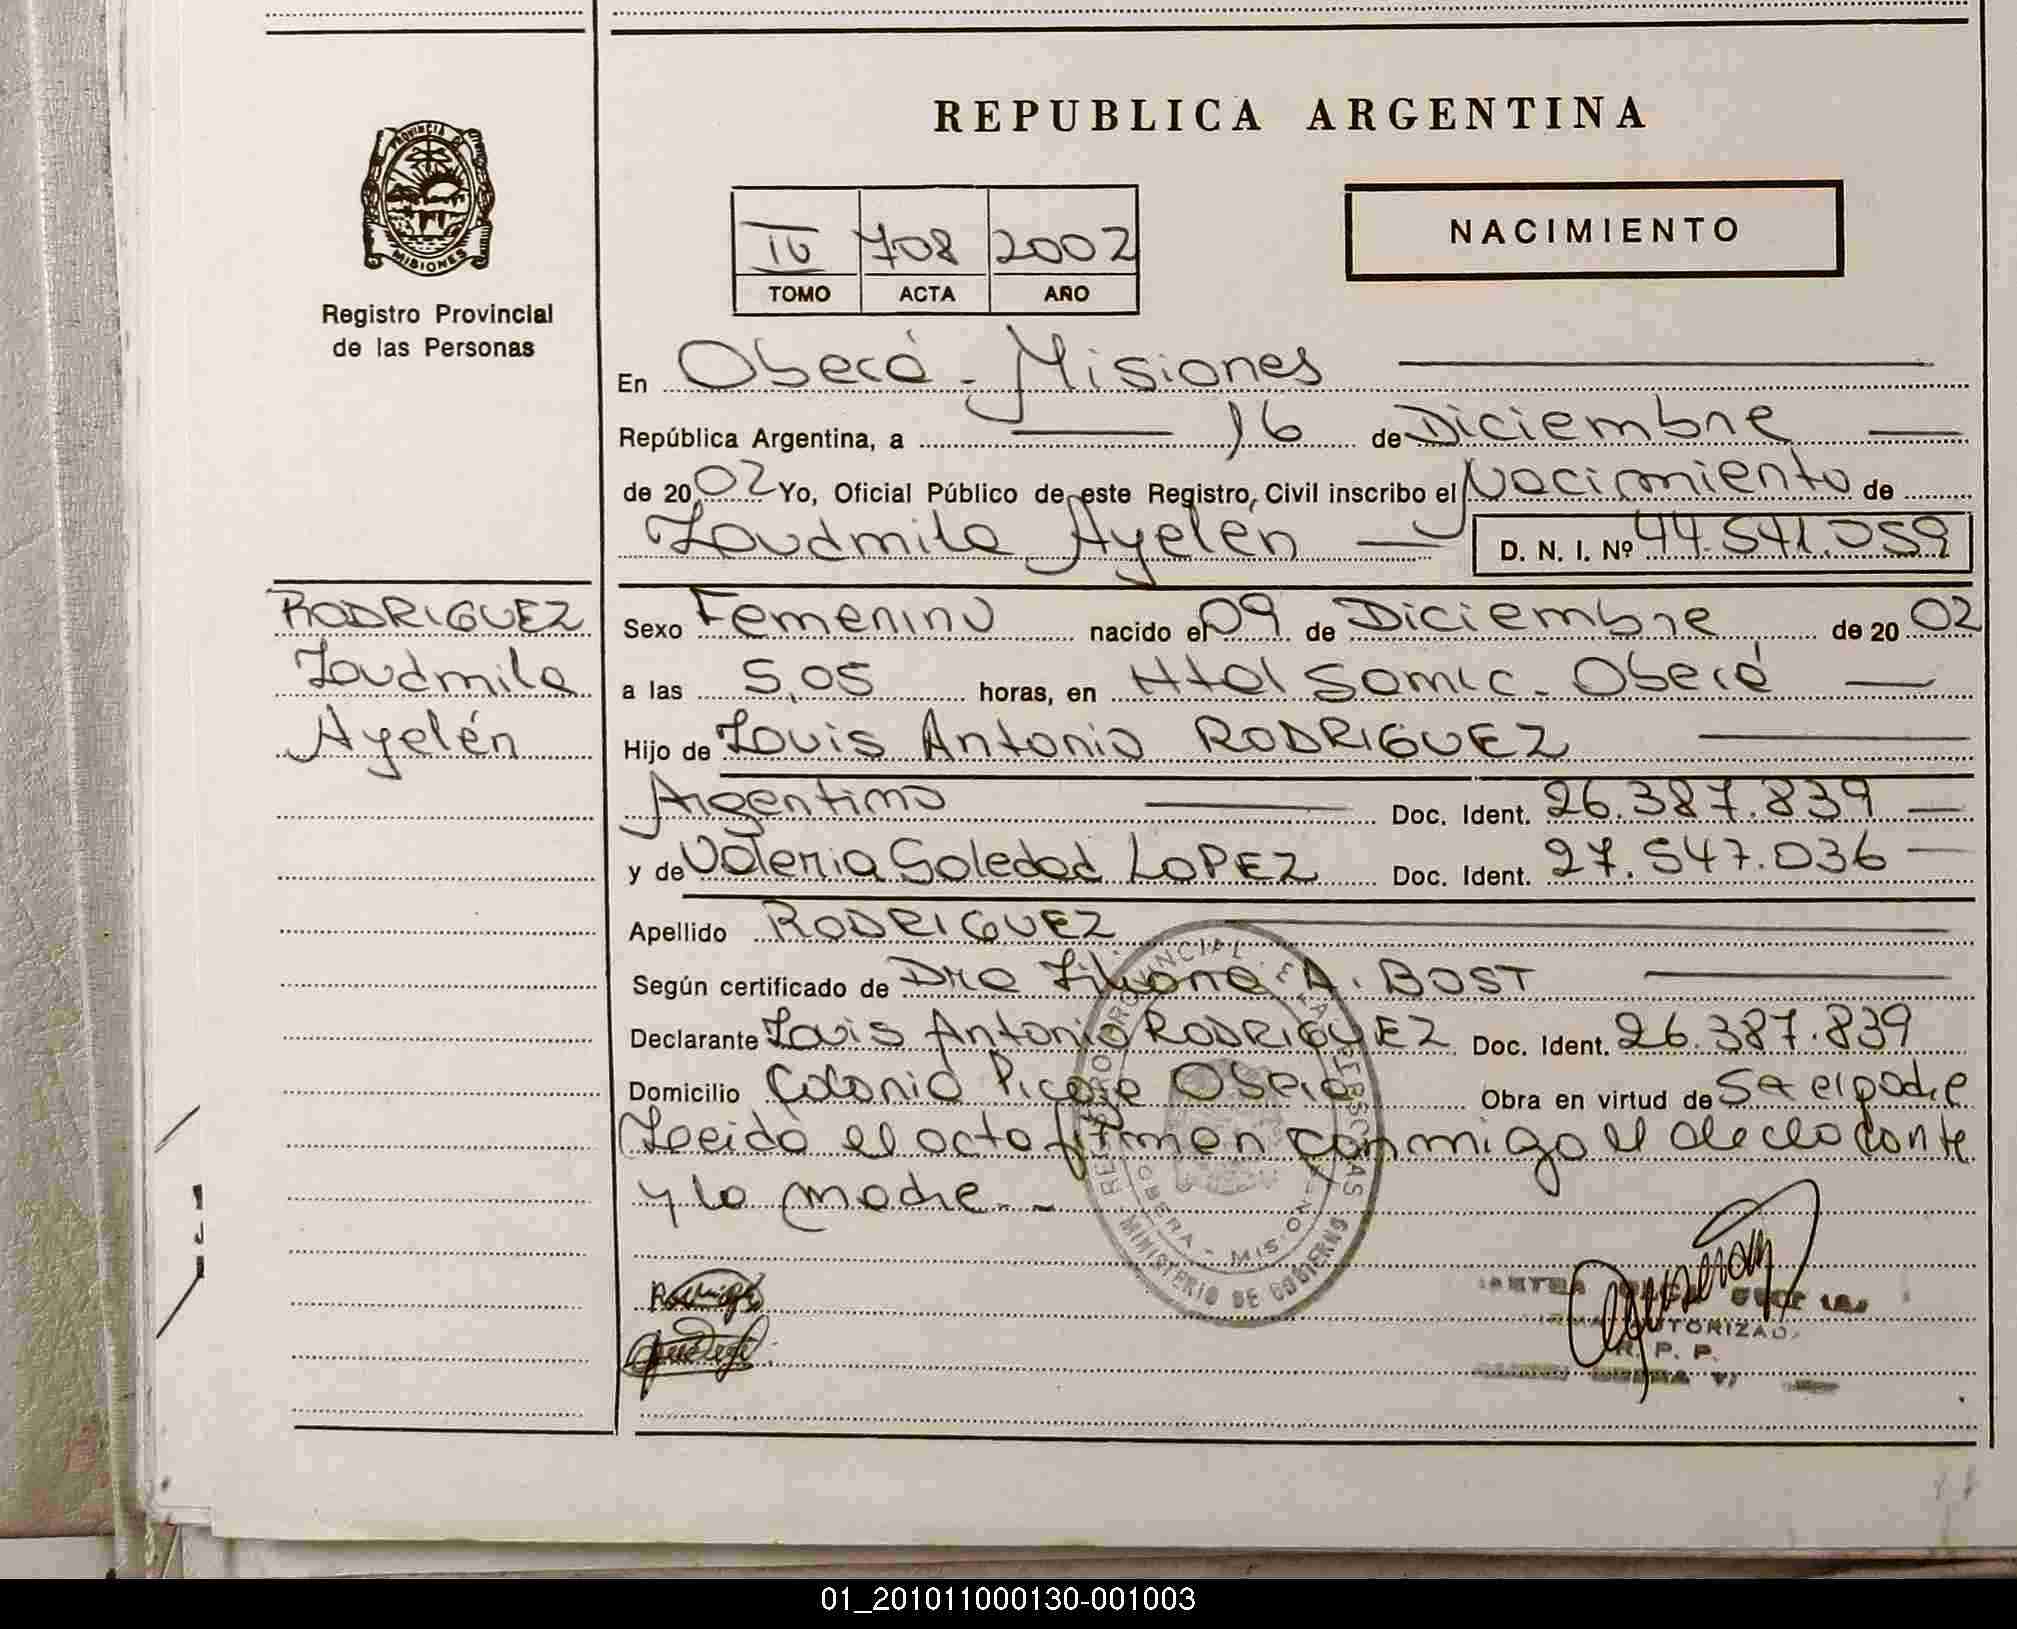 REPUBLICA ARGENTINA
PROVINCIA DE MISIONES
Registro Provincial
de las Personas
IV 708 2002
TOMO ACTA AÑO
NACIMIENTO
En Oberá - Misiones
República Argentina, a 16 de Diciembre
de 2002 Yo, Oficial Público de este Registro Civil inscribo el Nacimiento de
Loudmila Ayelén D. N. I. Nº 44.541.059
RODRIGUEZ
Loudmila
Ayelén
Sexo Femenino nacido el 09 de Diciembre de 2002
a las 5,05 horas, en Htal Samic - Oberá
Hijo de Louis Antonio RODRIGUEZ
Argentino Doc. Ident. 26.387.839
y de Valeria Soledad LOPEZ Doc. Ident. 27.547.036
Apellido RODRIGUEZ
Según certificado de Dra Liliana A. BOST
Declarante Louis Antonio RODRIGUEZ Doc. Ident. 26.387.839
Domicilio Colonia Picada Oberá Obra en virtud de Ser el padre
Leida el acta firman conmigo el declarante
y la madre.-
MINISTERIO DE GOBIERNO
OBERA - MISIONES
AUTORIZAD
R. P. P.
01_201011000130-001003